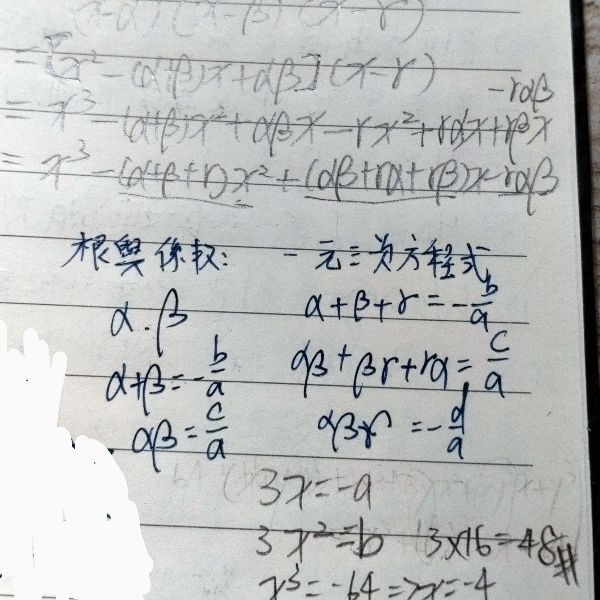 (x-α)(x-β)(x-r)
= [x²-(α+β)x+αβ](x-r)
-rαβ
= x³-(α+β)x²+αβx-rx²+rαx+rβx
= x³-(α+β+r)x²+(αβ+rα+rβ)x-rαβ
根與係數: 一元三次方程式
α.β
α+β+r=-b/a
α+β=-b/a
αβ+βr+rα=c/a
αβ=c/a
αβr=-d/a
3x=-a
3x²=b 3x16=48#
x³=-64=>x=-4